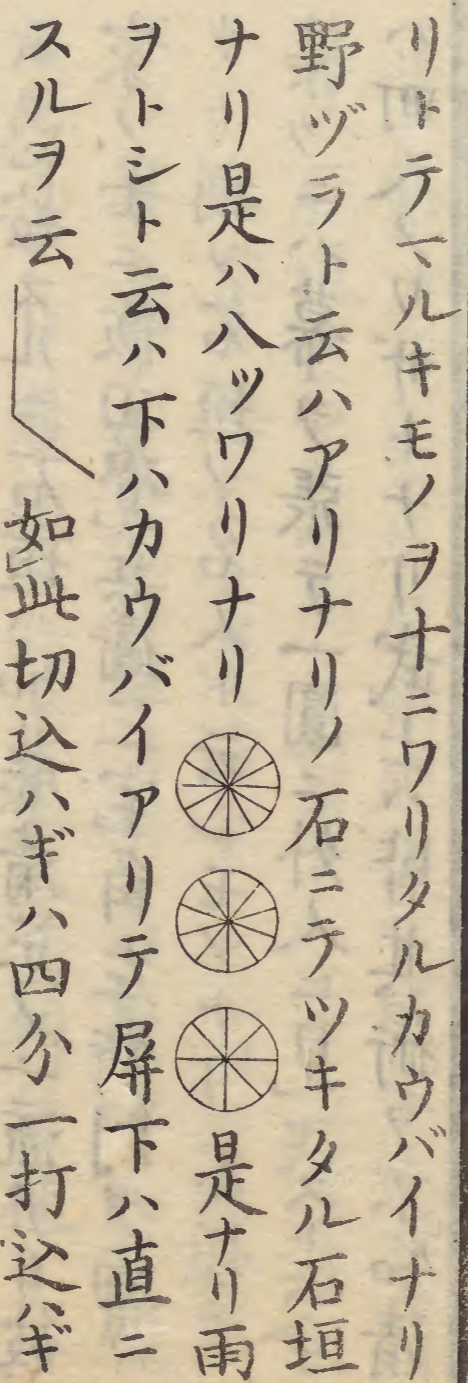 リトテマルキモノヲ十ニワリタルカウバイナリ
野ヅラト云ハアリナリノ石ニテツキタル石垣
ナリ是ハ八ツワリナリ是ナリ雨
ヲトシト云ハ下ハカウバイアリテ屏下ハ直ニ
スルヲ云如此切込ハギハ四分一打込ハギ